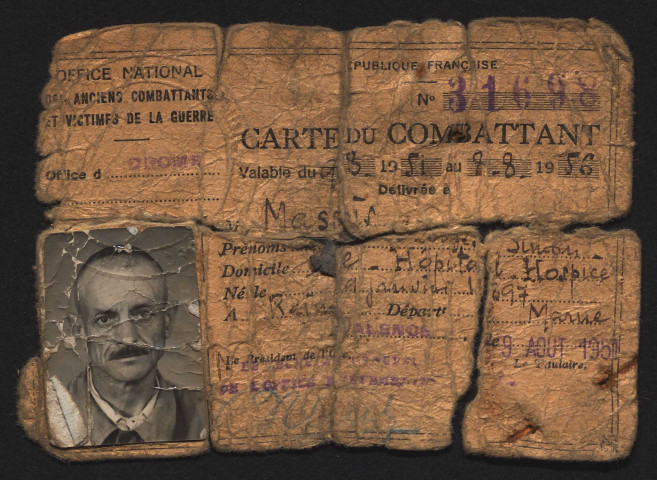 OFFICE NATIONAL
DES ANCIENS COMBATTANTS
ET VICTIMES DE LA GUERRE
Office d DROME
RÉPUBLIQUE FRANÇAISE
No 31698
CARTE DU COMBATTANT
Valable du 8 1951 au 8.8. 1956
Délivrée à
M Massis
Prénoms Simon
Domicile Hôpital Hospice
Né le janvier 1897
A Reims Départt Marne
VALENCE
le 9 AOUT 1951
Le Président de l'Office
Le Titulaire,